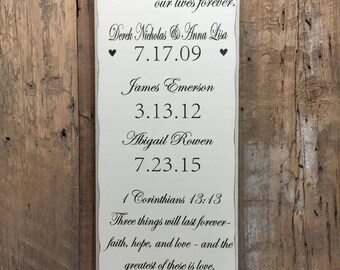 our lives forever.
Derek Nicholas & Anna Lisa
7.17.09
James Emerson
3.13.12
Abigail Rowen
7.23.15
1 Corinthians 13:13
Three things will last forever-
faith, hope, and love - and the
greatest of these is love.